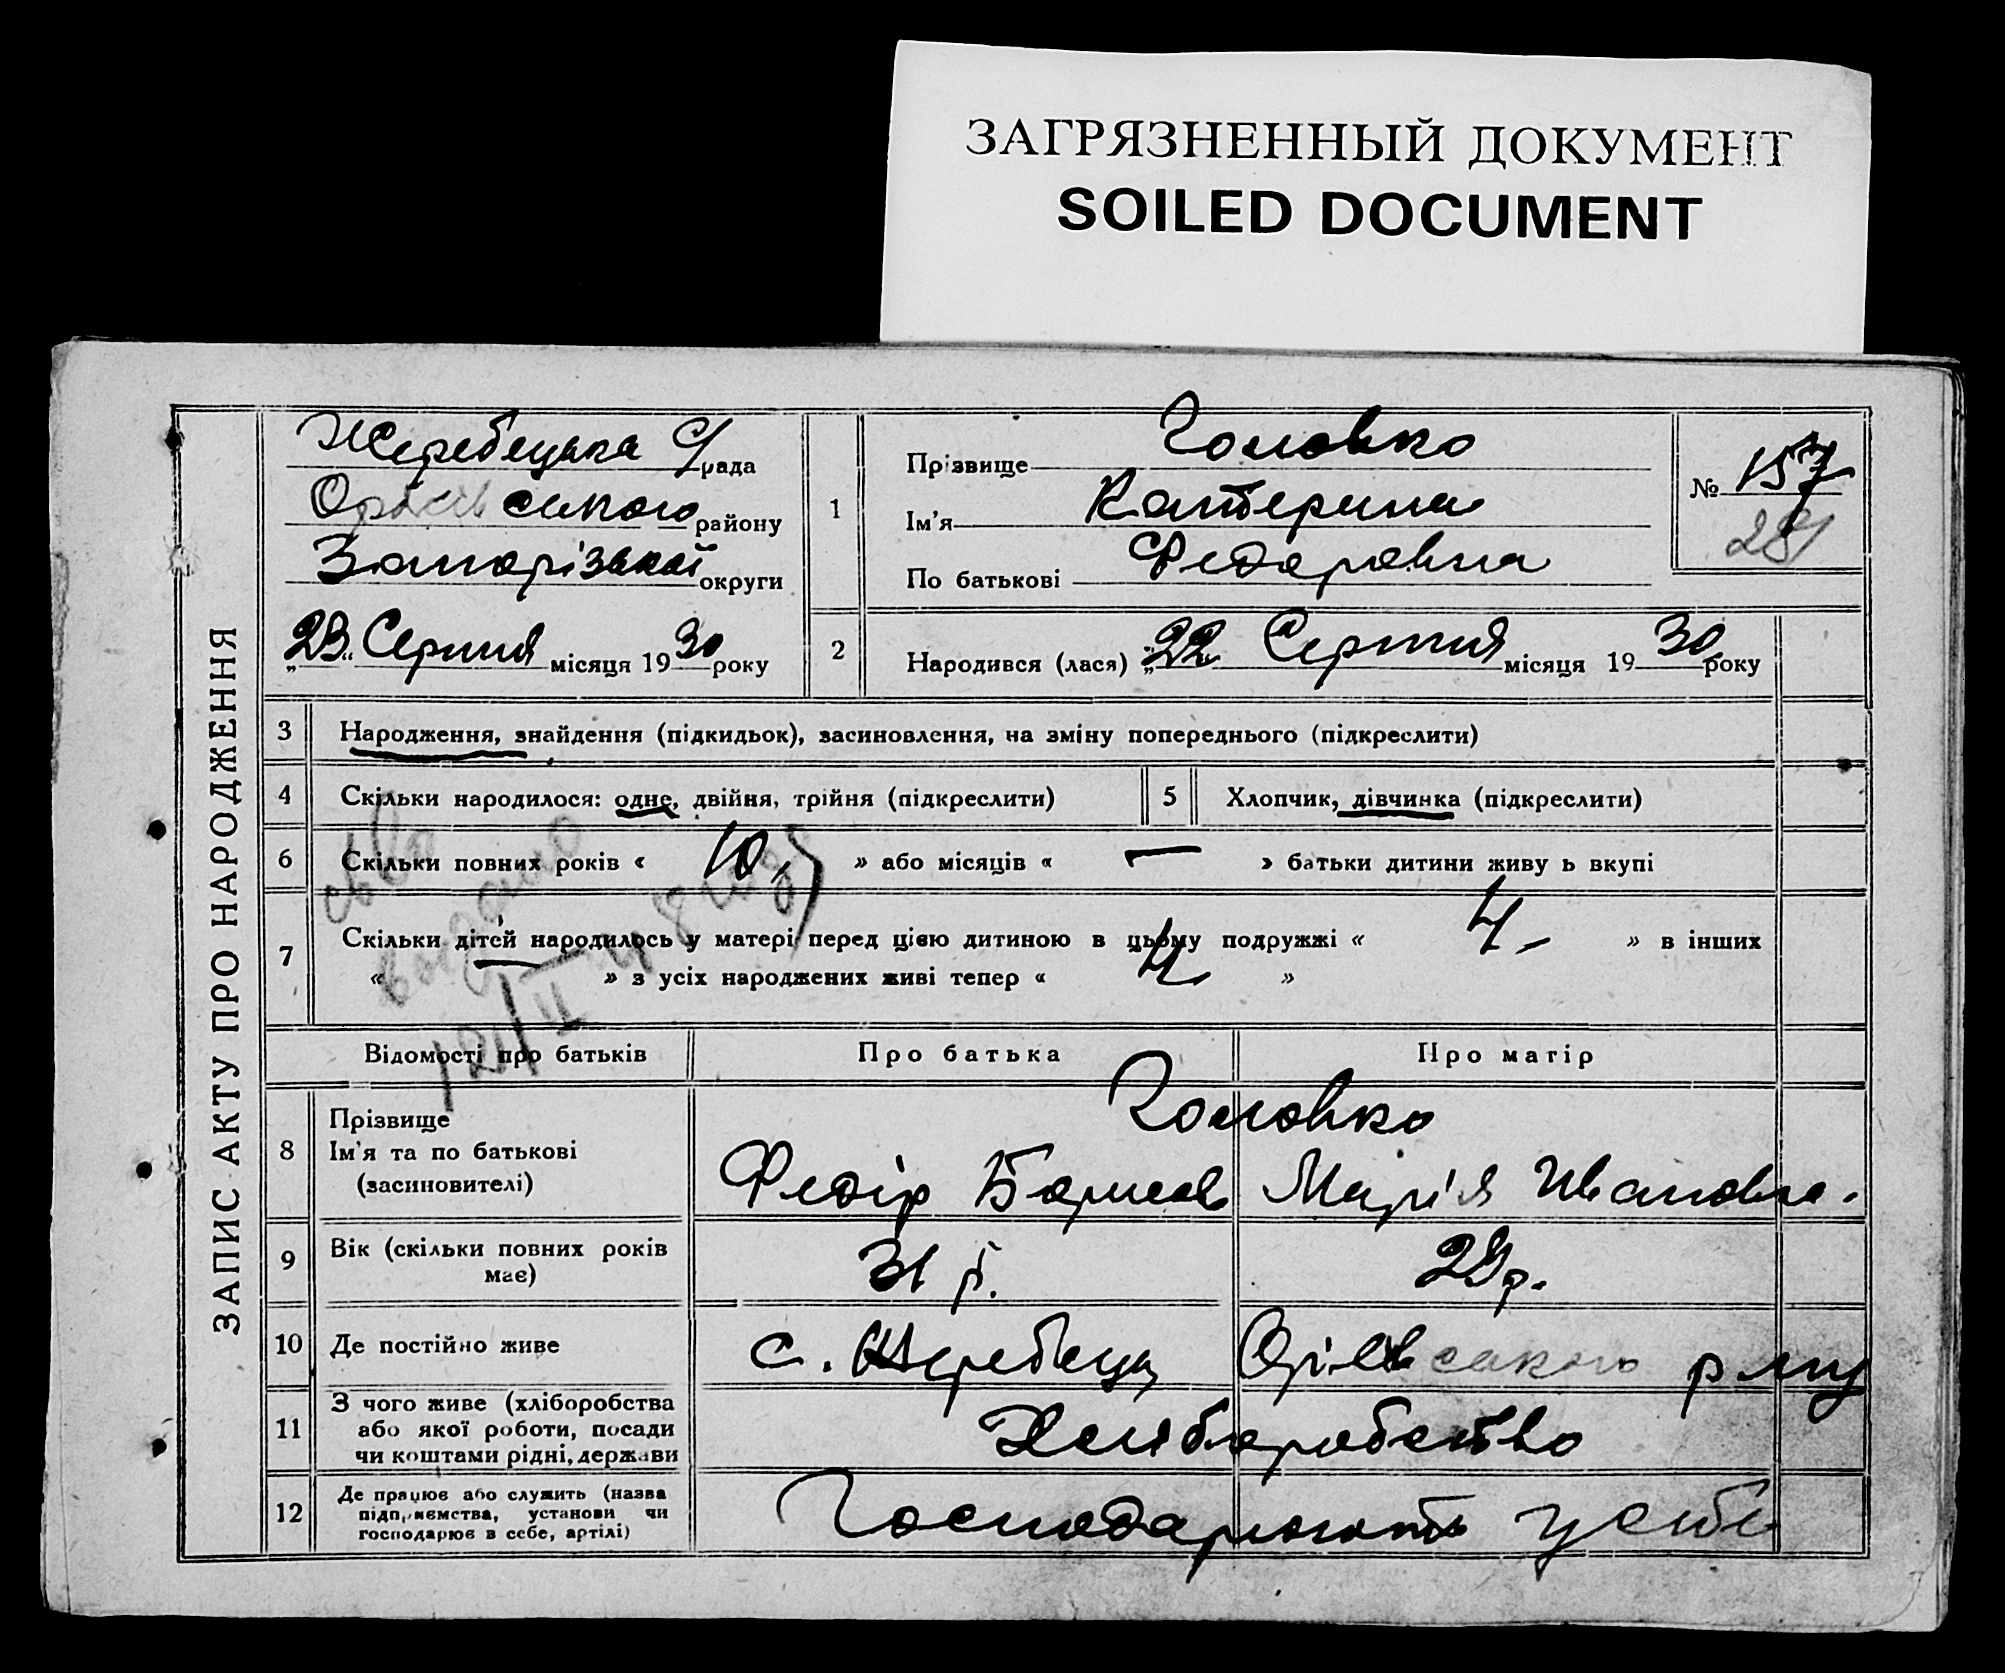 ЗАГРЯЗНЕННЫЙ ДОКУМЕНТ
SOILED DOCUMENT
ЗАПИС АКТУ ПРО НАРОДЖЕННЯ
Жеребецька С/рада
Оріхівського району
Запорізької округи
„23“ Серпня місяця 1930 року
1 Прізвище Головко
Ім'я Катерина
По батькові Федоровна
№ 157
281
2 Народився (лася) „22 Серпня місяця 1930 року
3 Народження, знайдення (підкидьок), засиновлення, на зміну попереднього (підкреслити)
4 Скільки народилося: одне, двійня, трійня (підкреслити)
5 Хлопчик, дівчинка (підкреслити)
6 Скільки повних років « 10, » або місяців « — » батьки дитини живу ь вкупі
7 Скільки дітей народилось у матері перед цією дитиною в цьому подружжі « 4, – » в інших
« — » з усіх народжених живі тепер « 4 »
св-во
выдано
12/II 48
Відомості про батьків Про батька Про матір
8 Прізвище
Ім'я та по батькові
(засиновителі)
Головко
Федір Борисов Марія Ивановна.
9 Вік (скільки повних років
має)
31 р. 29 р.
10 Де постійно живе
с. Жеребець Оріхівського р-ну
11 З чого живе (хліборобства
або якої роботи, посади
чи коштами рідні, держави
Хліборобство
12 Де працює або служить (назва
підприємства, установи чи
господарює в себе, артілі)
Господарюють у себе